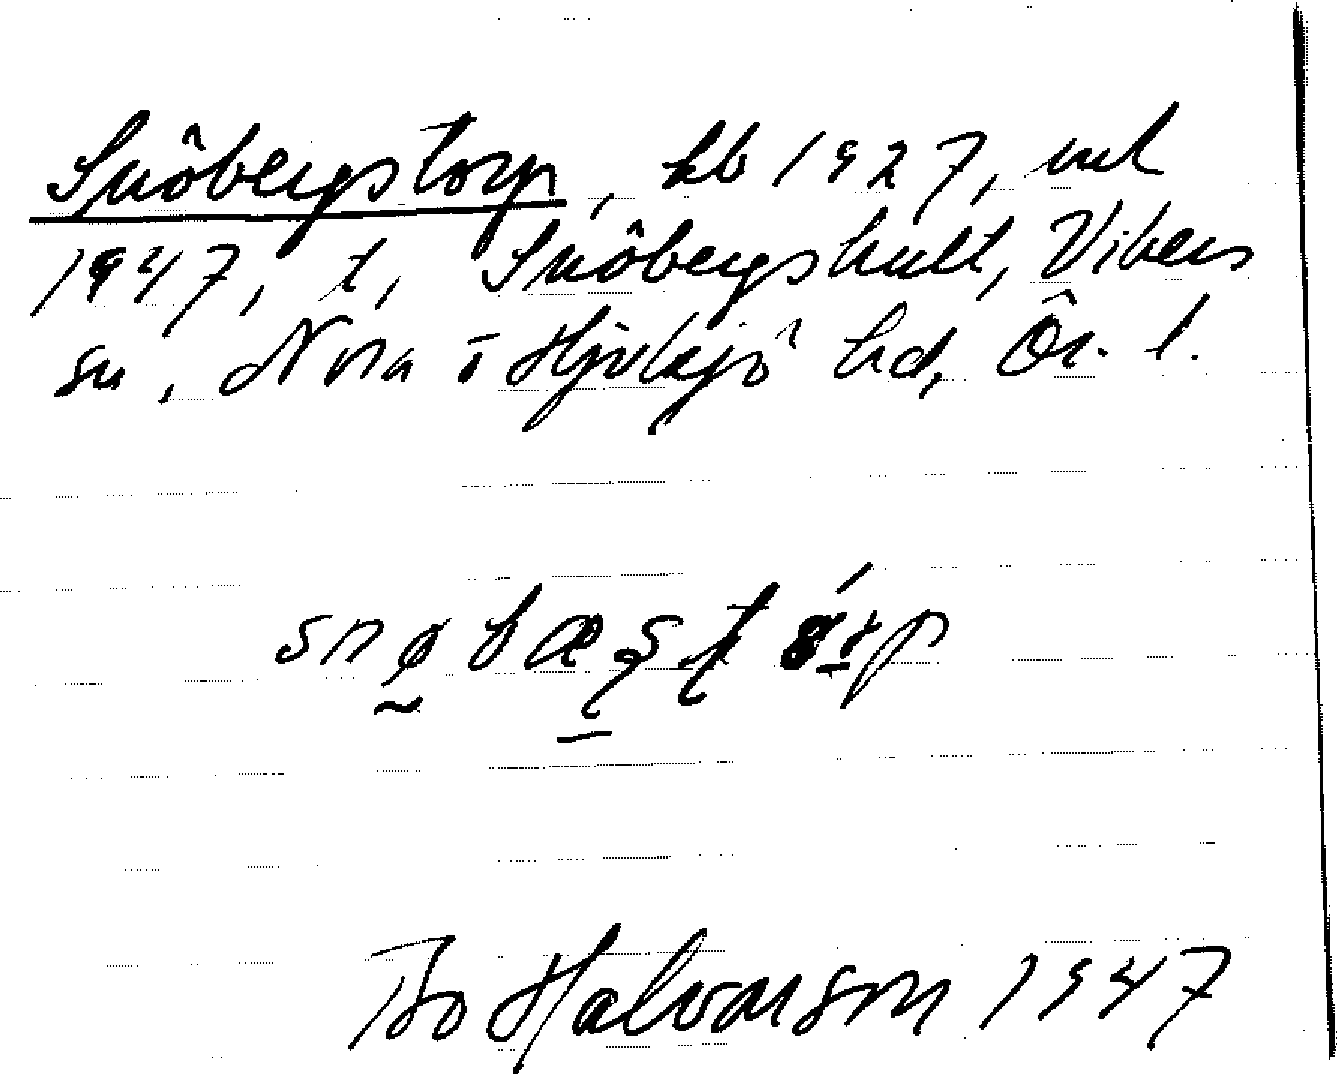 Snöbergstorp, hb 1927, url
1947, t, Snöbergshult, Vikers
sn, Nora o Hjulsjö hd, Ör. l.
Bo Halvarson 1947